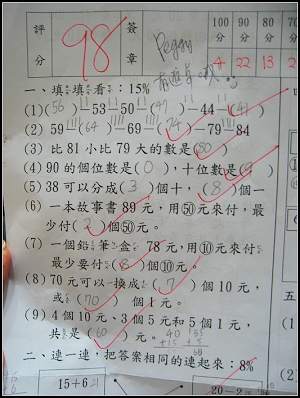 評分 98 簽章 Peggy 100分 90分 80分 70
4 22 13 2
一、填填看：15%
(1)(56)—53—50—(47)—44—(41)
(2) 59—(64)—69—(74)—79—84
(3) 比81小比79大的數是(80)
(4) 90的個位數是(0)，十位數是(9)
(5) 38可以分成(3)個十，(8)個一
(6) 一本故事書89元，用㊿元來付，最
少付(2)個㊿元。
(7) 一個鉛筆盒78元，用⑩元來付
最少要付(8)個⑩元。
(8) 70元可以換成(7)個10元，
或(70)個1元。
(9) 4個10元、3個5元和5個1元，
共是(60)元。
二、連一連，把答案相同的連起來：8%
15＋6
20－2
五